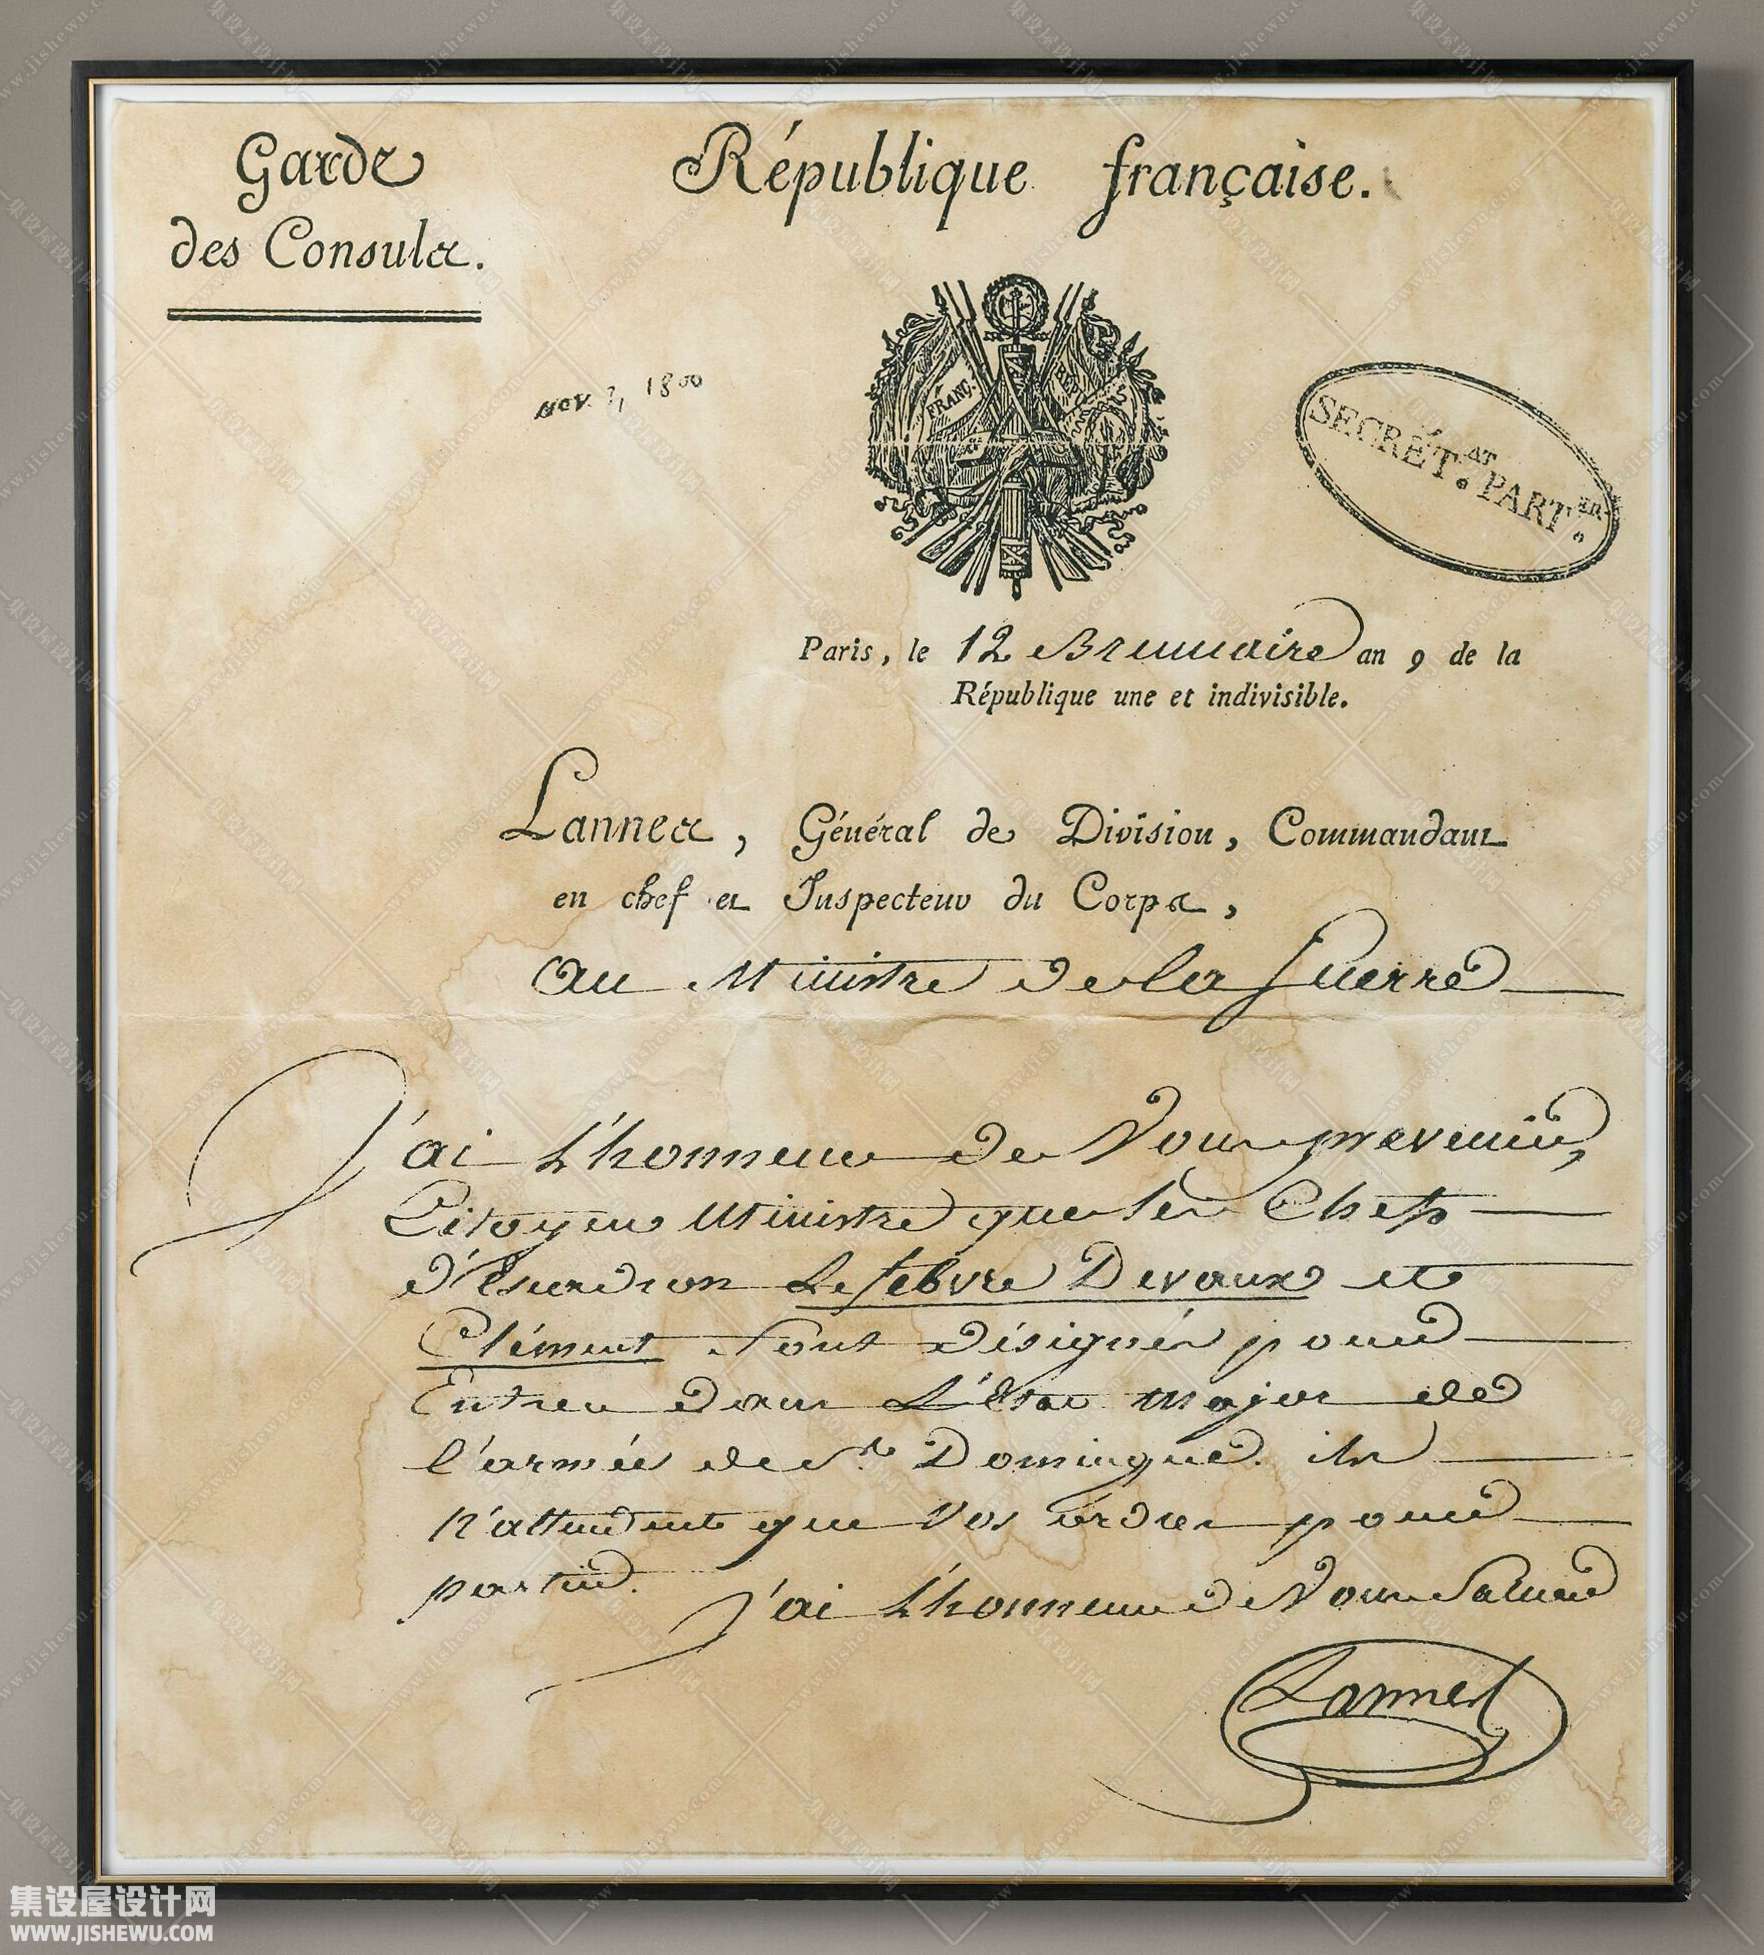 Garde
des Consuls.
République française.
nov. 3, 1800
FRANÇ.
SECRÉT.AT PART.ER
Paris, le 12 Brumaire an 9 de la
République une et indivisible.
Lannes, Général de Division, Commandant
en chef et Inspecteur du Corps,
au Ministre de la Guerre
J'ai L'honneur de Vous prevenir,
Citoyen Ministre que les Chefs
d'Escadron Lefebvre Devaux et
Clément Sont désignés pour
Entrer dans L'état major de
l'armée de St. Domingue. ils
n'attendent que Vos ordres pour
partir.
J'ai L'honneur de Vous Saluer
Lannes
集设屋设计网
www.JISHEWU.COM